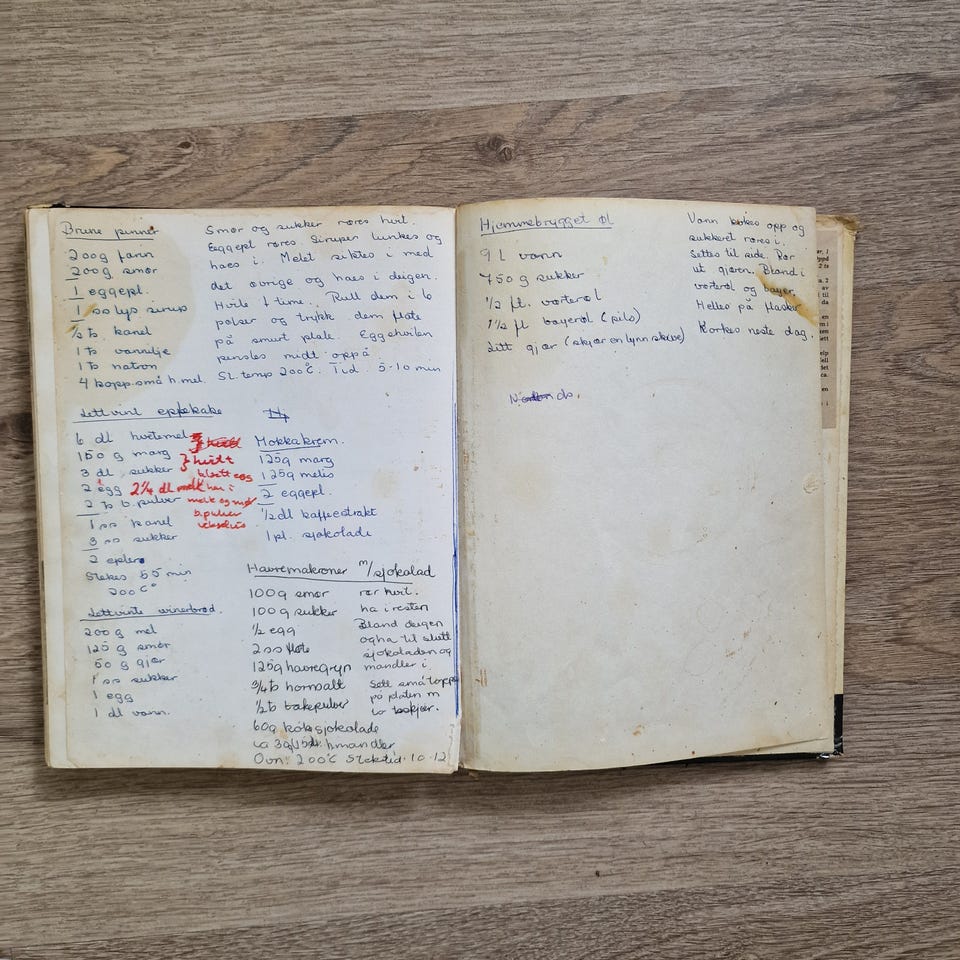 Brune pinner
200g farin
200g smør
1 eggepl.
1 ss lys sirup
½ ts kanel
1 ts vanilje
1 ts natron
4 kopp. små h.mel.
Smør og sukker røres hvit.
Eggepl røres. Sirupen lunkes og
haes i. Melet siktes i med
det øvrige og haes i deigen.
Hvile 1 time. Rull dem i 6
pølser og trykk dem flate
på smurt plate. Eggehviten
pensles midt oppå.
St. temp 200°C. Tid 5-10 min
Lettvint eplekake
6 dl hvetemel
150 g marg
3 dl sukker
2 egg
2 ts b.pulver
1 ss kanel
3 ss sukker
2 epler
Stekes 55 min
200 C°
hvitt
bløtt egg
2¼ dl melk ha i
melk og mel
b.pulver
Lettvinte wienerbrød.
200 g mel
125 g smør
50 g gjær
1 ss sukker
1 egg
1 dl vann.
Mokkakrem.
125g marg
125g melis
2 eggepl.
½ dl kaffeestrakt
1 pl. sjokolade
Havremakroner m/sjokolad
100g smør rør hvit.
100g sukker ha i resten
½ egg Bland deigen
2 ss fløte og ha til slutt
125g havregryn sjokoladen og
¾ ts hornsalt mandler i
½ ts bakepulver Sett små topper
60g koksjokolade på platen m
ca mandler to teskjer.
Ovn: 200°C Steketid 10-12
Hjemmebrygget øl
9 L vann
750 g sukker
½ fl. vørterøl
1½ fl bayerøl (pils)
Litt gjær (skjær en tynn skive)
Vann kokes opp og
sukkeret røres i.
Settes til side. Rør
ut gjæren. Bland i
vørterøl og bayer.
Helles på flasker
Korkes neste dag.